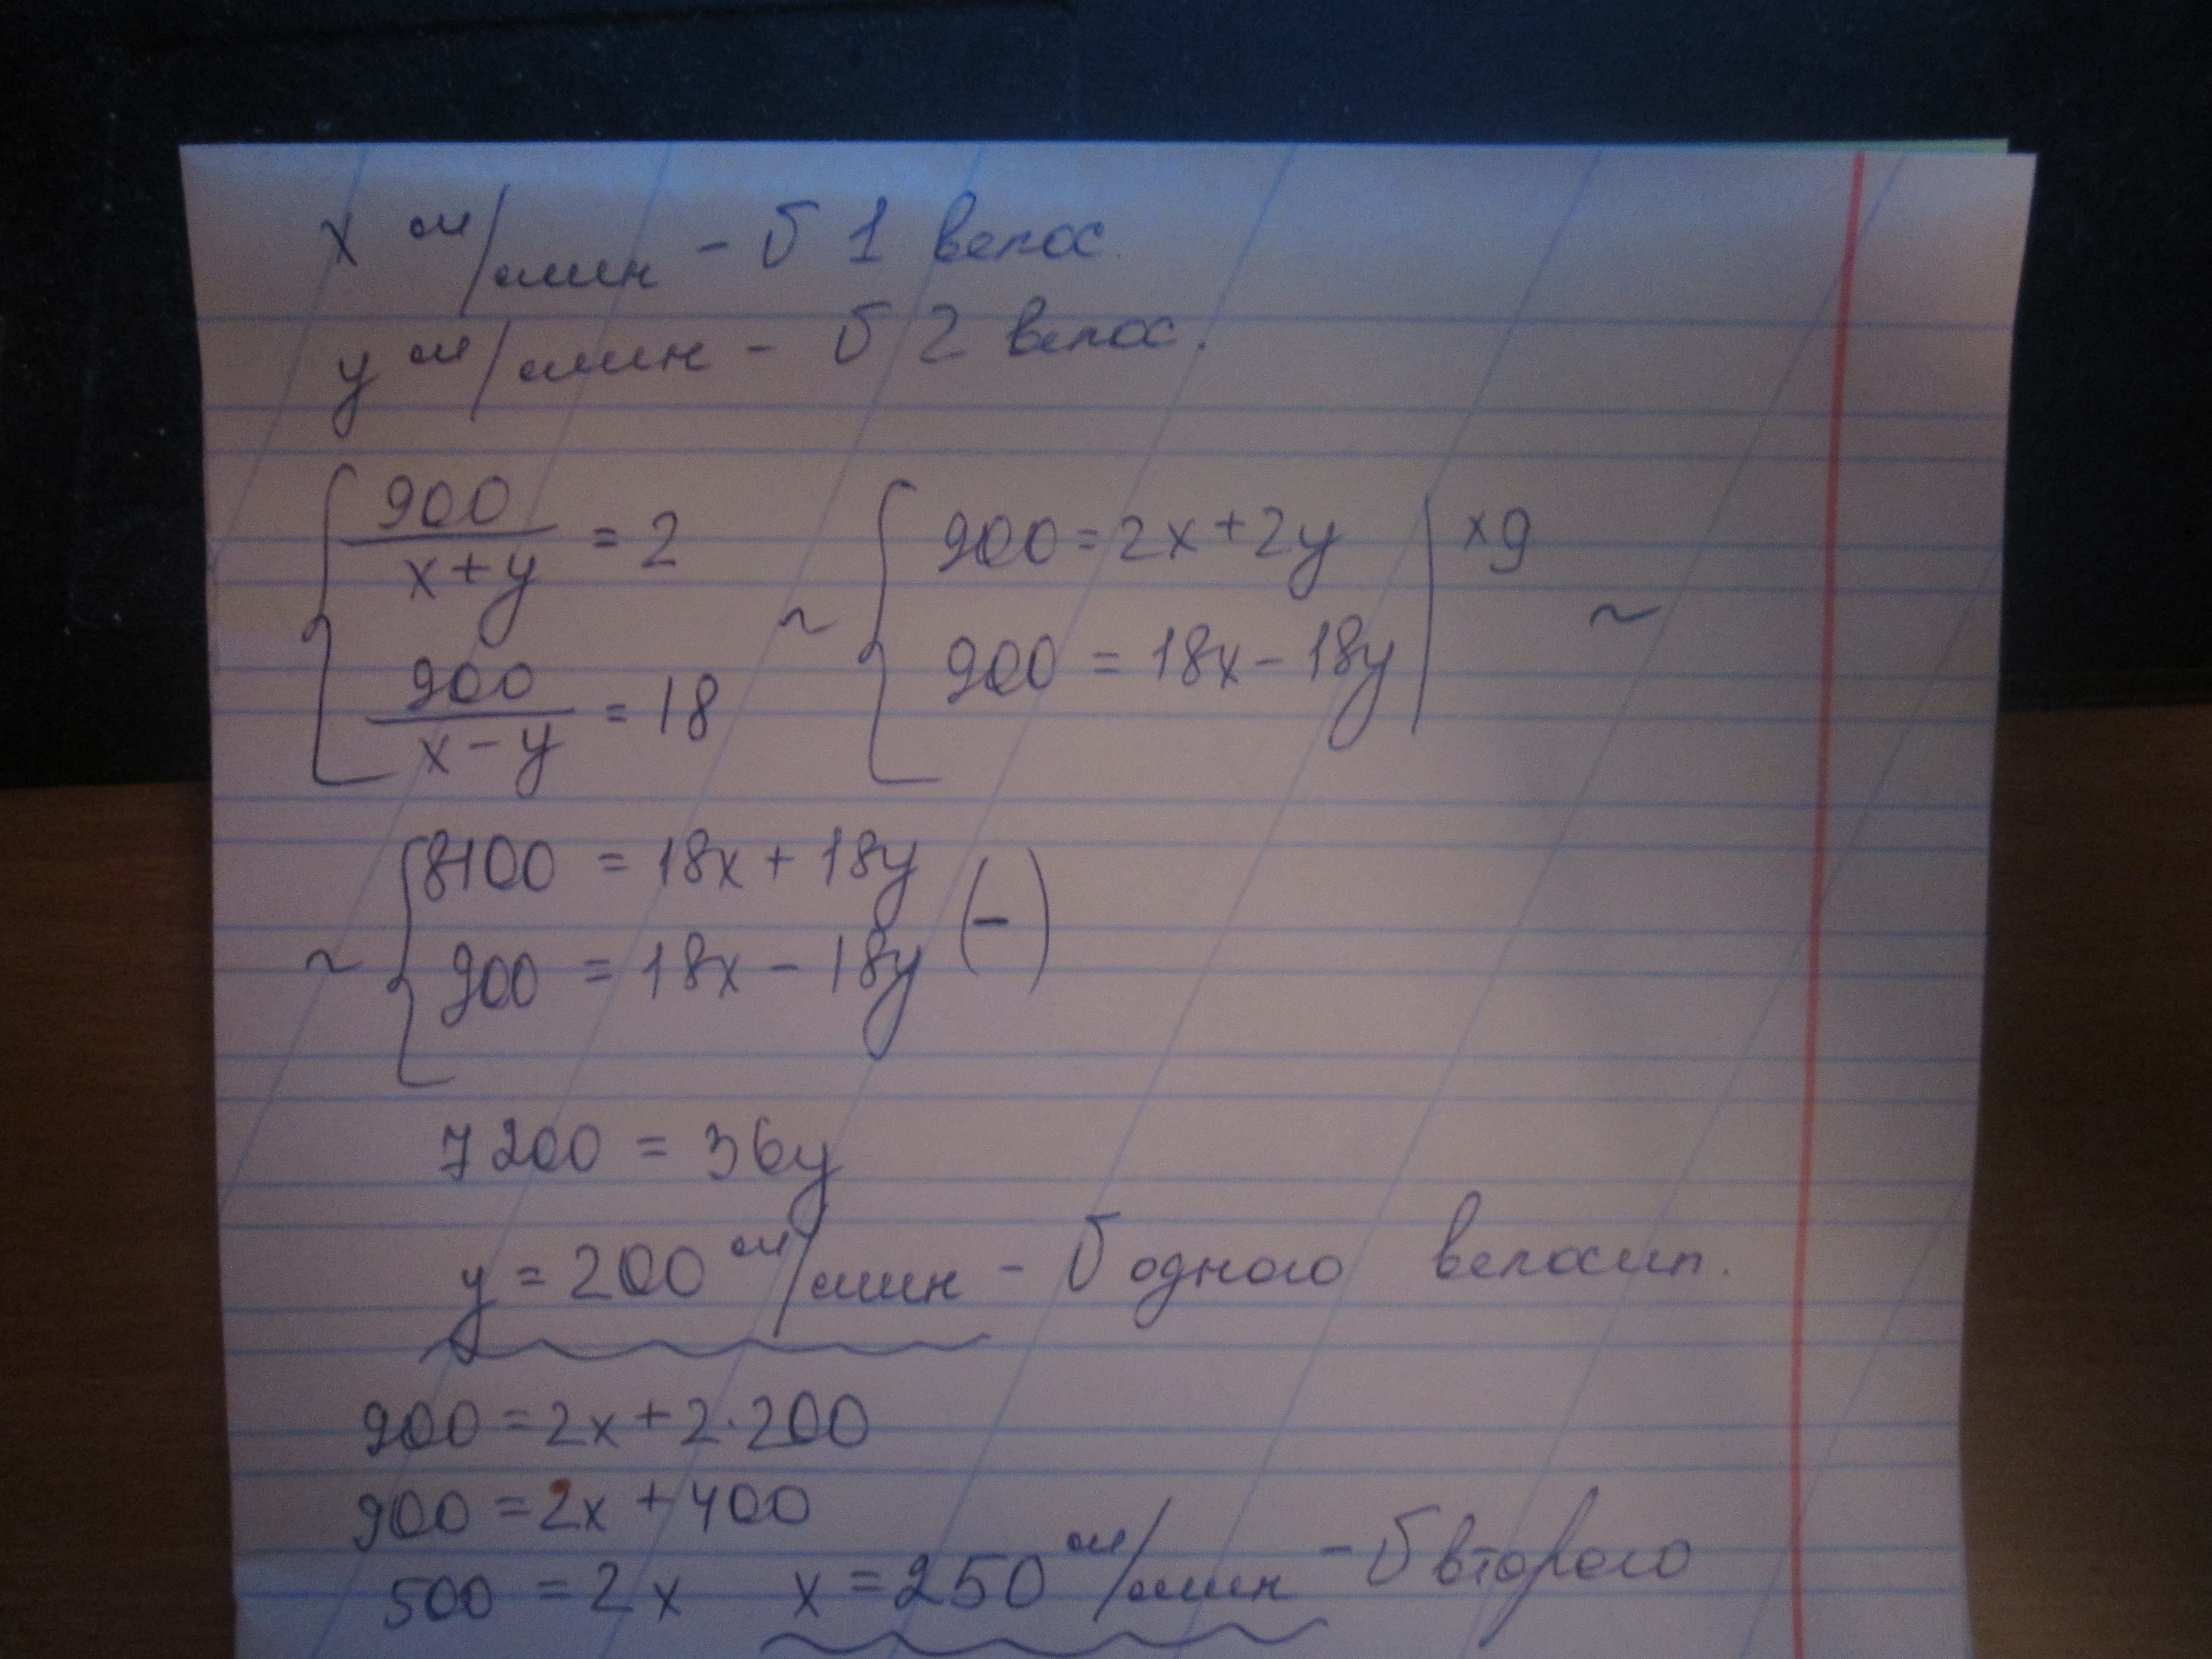 x м/мин - υ 1 велос.
y м/мин - υ 2 велос.
{ 900/(x+y) = 2 ~ { 900 = 2x + 2y | ×9 ~
900/(x-y) = 18 900 = 18x - 18y |
~ { 8100 = 18x + 18y (-)
900 = 18x - 18y
7200 = 36y
y = 200 м/мин - υ одного велосип.
900 = 2x + 2·200
900 = 2x + 400
500 = 2x x = 250 м/мин - υ второго